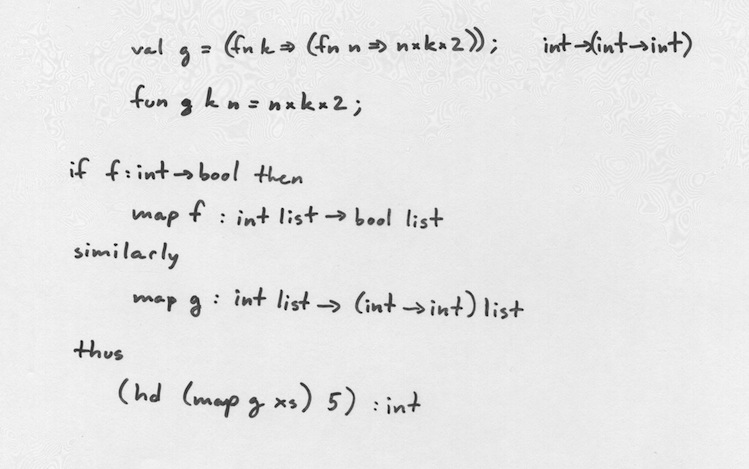 val g = (fn k ⇒ (fn n ⇒ n*k*2)); int→(int→int)
fun g k n = n*k*2;
if f : int → bool then
map f : int list → bool list
similarly
map g : int list → (int → int) list
thus
(hd (map g xs) 5) : int